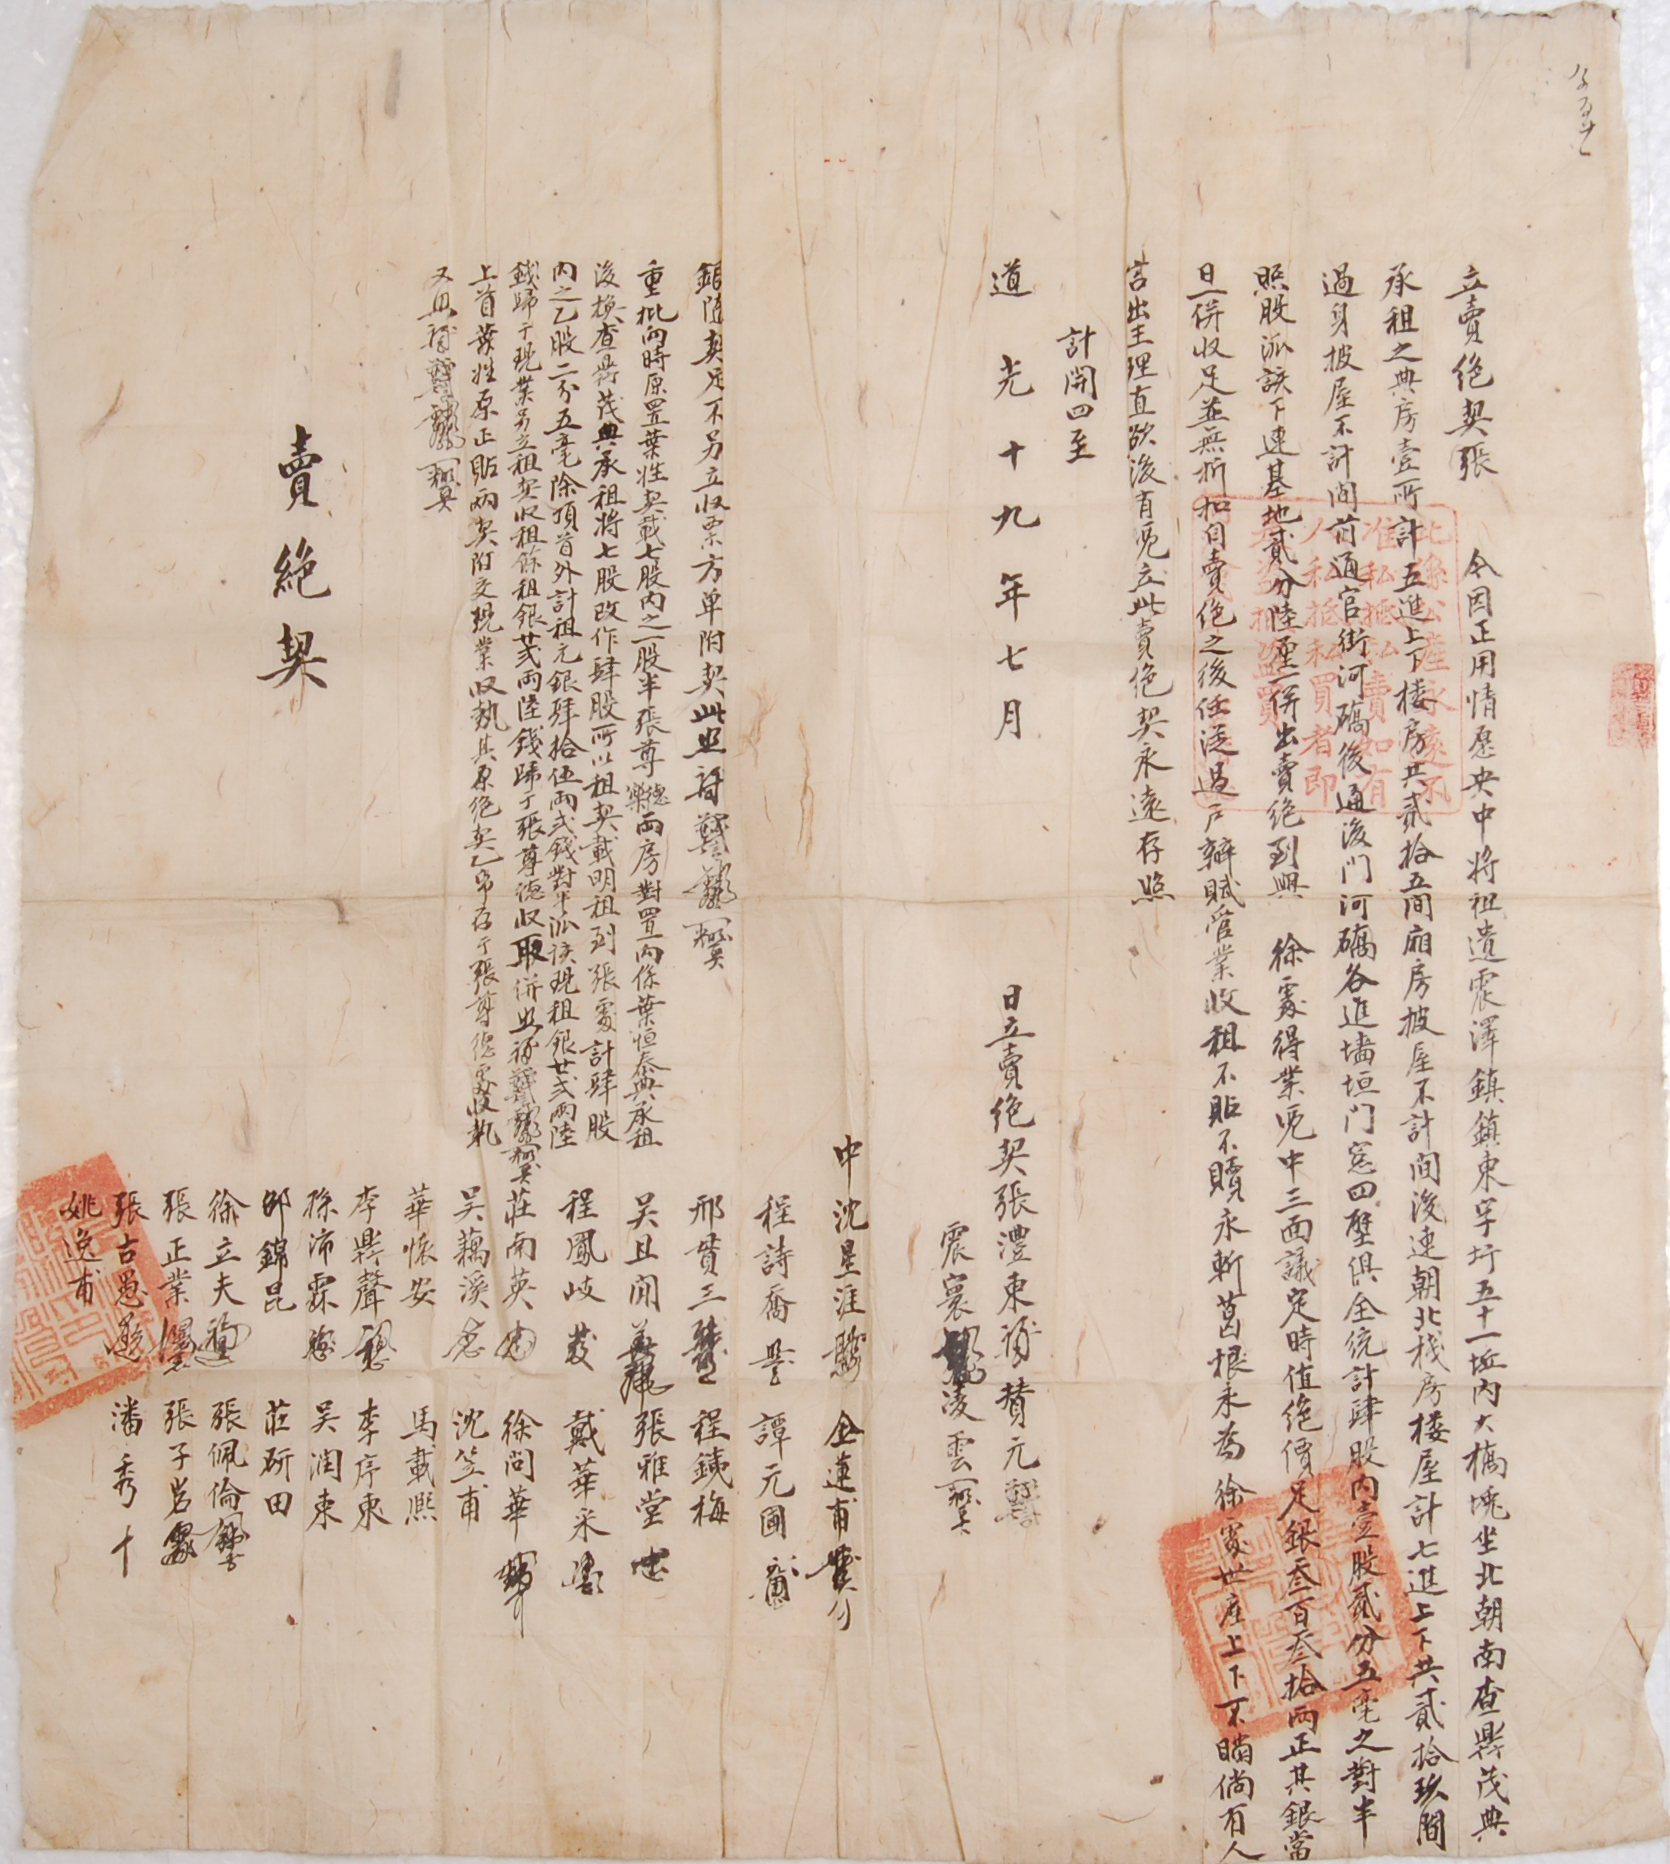 立賣絕契張　　令因正用情愿央中將祖遺震澤鎮鎮東字圩五十一坵內大橋堍坐北朝南查興茂典
承租之典房壹所計五進上下樓房共貳拾五間廂房披屋不計間後連朝北棧房樓屋計七進上下共貳拾玖間
過身披屋不計間前通官街河礄後通後門河礄各進墻垣門窓四壁俱全統計肆股內壹股貳分五毫之對半
照股派該下連基地貳分陸厘一併出賣絕到與　徐處得業憑中三面議定時值絕價足銀叁百叁拾兩正其銀當
日一併收足並無折扣自賣絕之後任從過戶辦賦管業收租不貼不贖永斬葛根永為　徐處世産上下不瞒倘有人
言出主理直欲後有憑立此賣絕契永遠存照
計開四至
道光十九年七月　　日立賣絕契張澧東　贊元
震寰　凌雲
中沈星涯　金蓮甫
程詩喬　譚元圃
邢貫三　程鐵梅
吴且閒　張雅堂
程鳳岐　戴華采
莊南英　徐問華
吴藕溪　沈笠甫
華懷安　馬載熙
李興聲　李序東
孫沛霖　吴潤東
邱錦昆　莊研田
徐立夫　張佩倫
張正業　張子嵒
張古愚　潘秀十
姚逸甫
銀隨契足不另立收票方单附契此照
重批向時原置葉姓契載七股內之一股半張尊德樂兩房對置內係葉恒泰典承租
後換查興茂典承租將七股改作肆股所以租契載明租到張處計肆股
內之乙股二分五毫除項首外計租元銀肆拾伍兩弍錢對半派該現租銀廿弍兩陸
錢歸于現業另立租契收租餘租銀廿弍兩陸錢歸于張尊德收取併照
上首葉姓原正貼兩契附交現業收執其原絕契乙帋存于張尊德處收執
又照
賣絕契